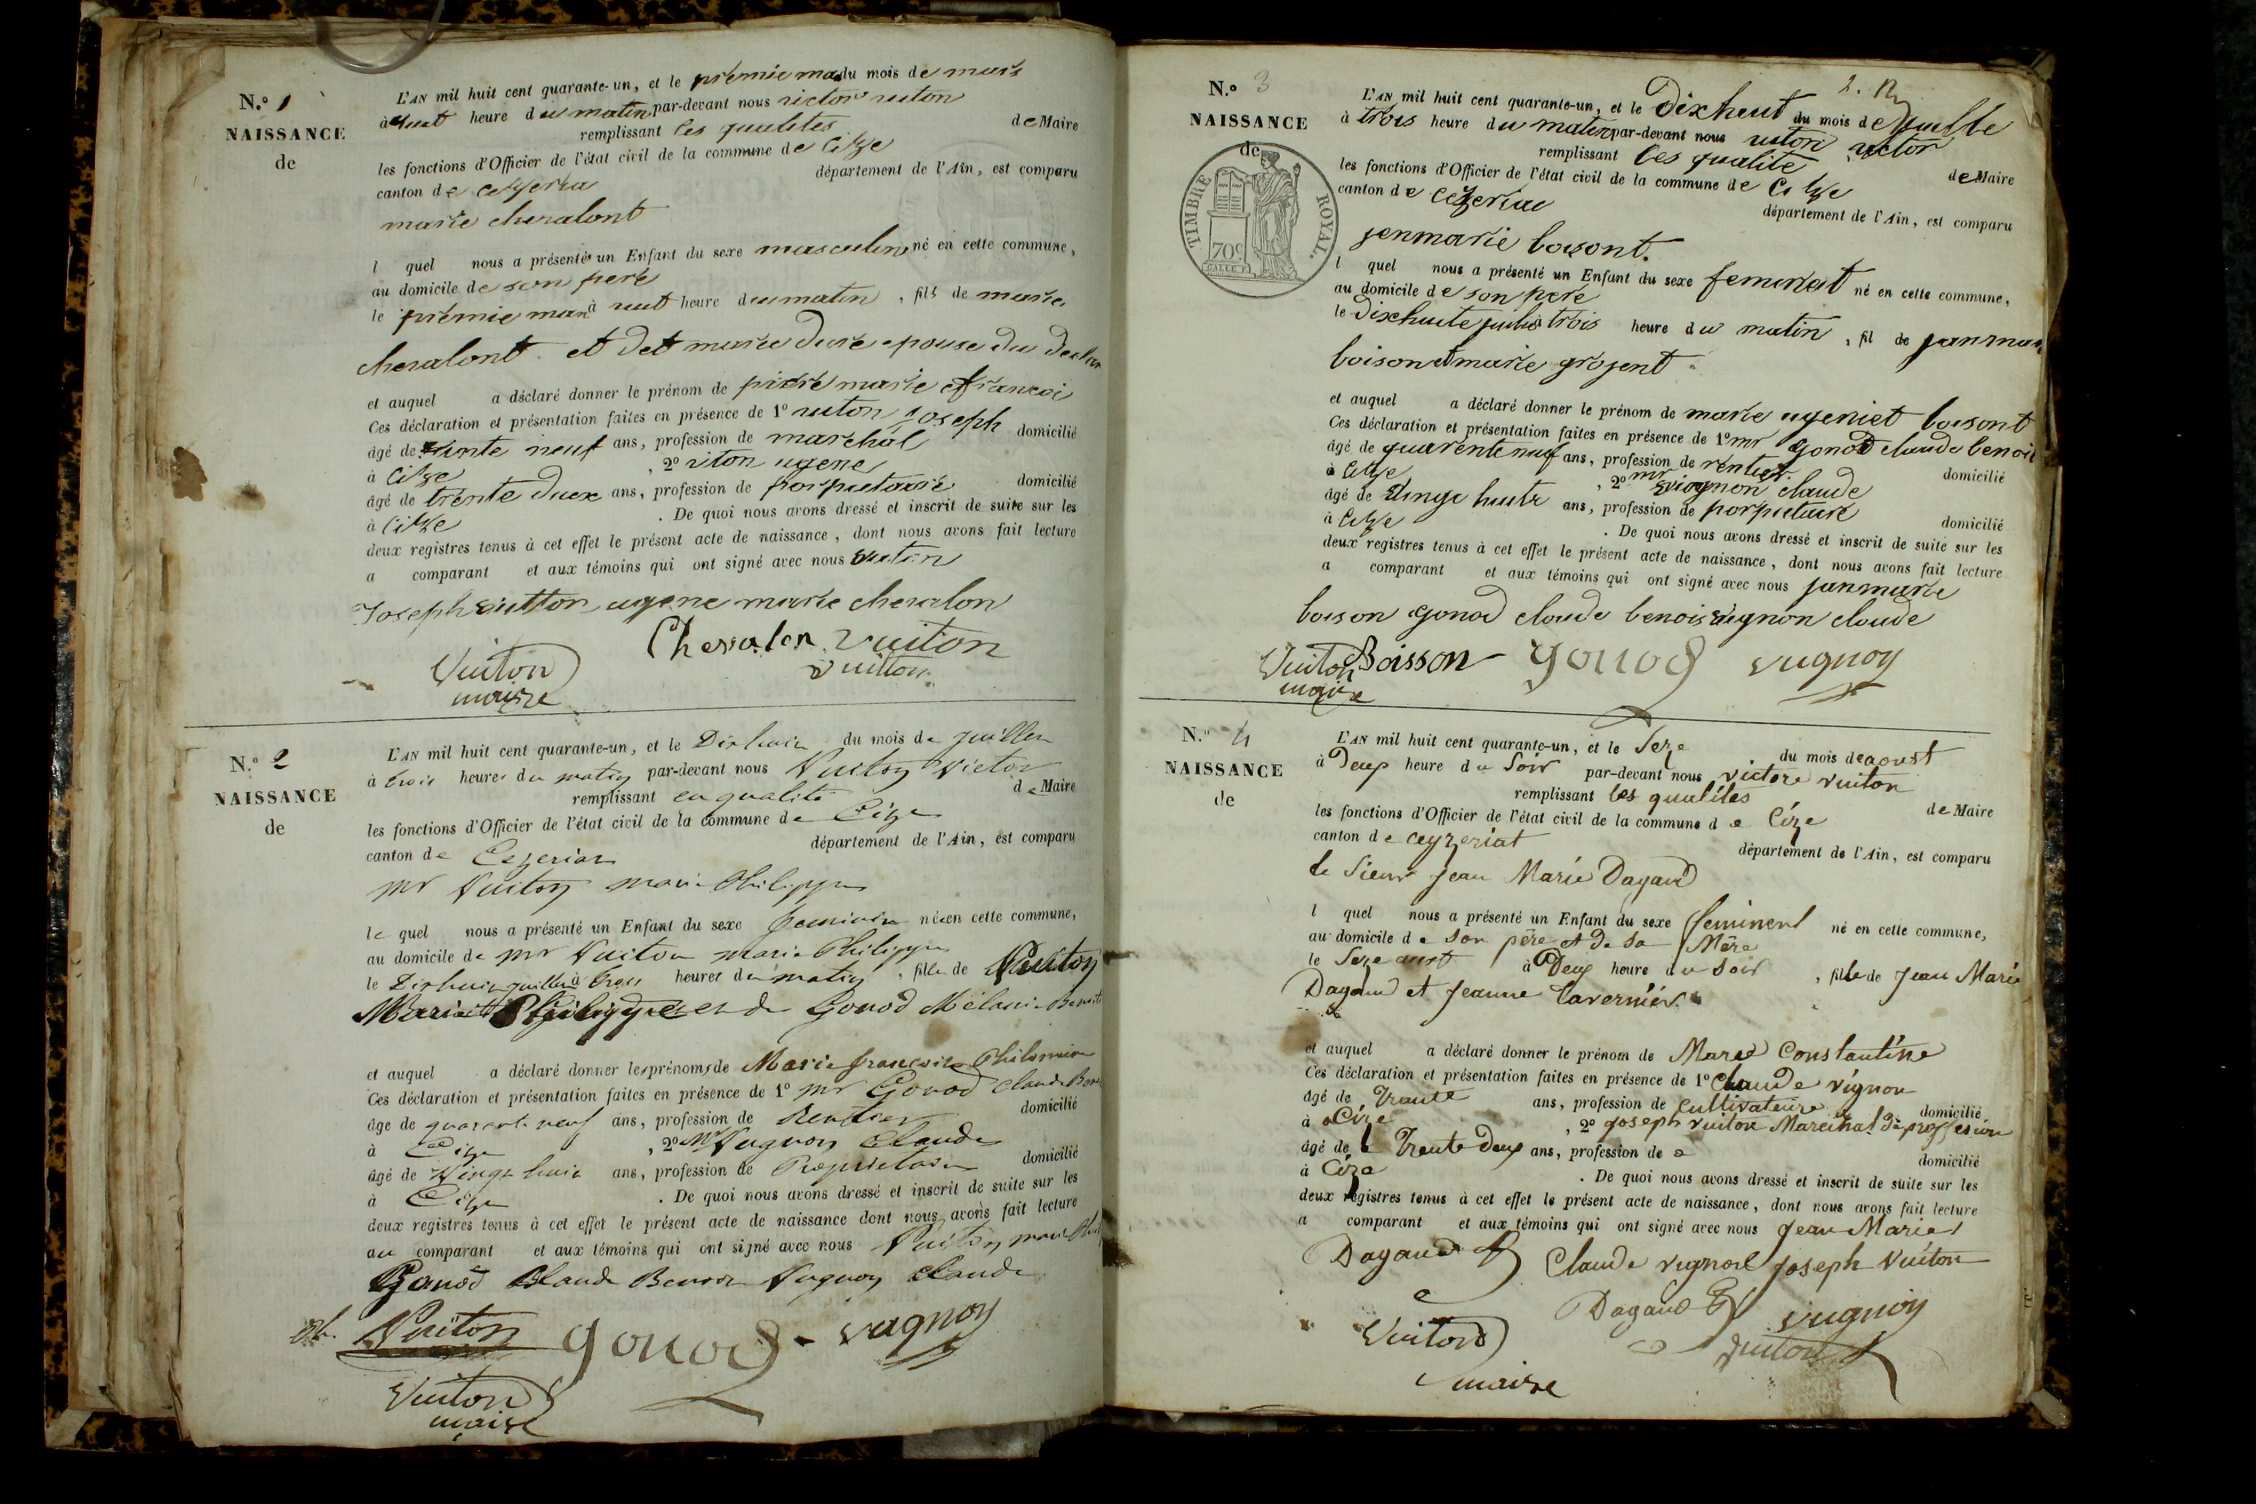 N.o 1
NAISSANCE
de
L'AN mil huit cent quarante-un, et le premie mar du mois de mars
à huit heure du matin par-devant nous victor vuiton
remplissant les qualites de Maire
les fonctions d'Officier de l'état civil de la commune de Cize
canton de département de l'Ain, est comparu
marie chevalont
l quel nous a présenté un Enfant du sexe masculin né en cette commune,
au domicile de son pere
le premie mar à huit heure du matin, fils de marie
chevalont et det marie epouse du
et auquel a déclaré donner le prénom de pierre marie francoi
Ces déclaration et présentation faites en présence de 1o vuiton joseph
âgé de trente neuf ans, profession de marchal domicilié
à Cize, 2o viton ugene
âgé de trente duex ans, profession de domicilié
à Cize. De quoi nous avons dressé et inscrit de suite sur les
deux registres tenus à cet effet le présent acte de naissance, dont nous avons fait lecture
a comparant et aux témoins qui ont signé avec nous vuiton
Joseph vuitton ugene marie chevalon
Chevalon vuiton
Vuiton vuitton
maire
N.o 2
NAISSANCE
de
L'AN mil huit cent quarante-un, et le Dixhuit du mois de juillet
à trois heures du matin par-devant nous Vuiton Victor
remplissant en qualité de Maire
les fonctions d'Officier de l'état civil de la commune de Cize
canton de Cezeriat département de l'Ain, est comparu
mr Vuiton marie Philippe
le quel nous a présenté un Enfant du sexe feminin née en cette commune,
au domicile de mr Vuiton marie Philippe
le Dixhuit juillet à trois heures du matin, fille de Vuiton
Marie Philippe et de Gonod Mélanie
et auquel a déclaré donner les prénoms de Marie françoise Philomine
Ces déclaration et présentation faites en présence de 1o mr Gonod Claude
âgé de quarante neuf ans, profession de Rentier domicilié
à Cize, 2o Mr Vugnon Claude
âgé de Vingt huit ans, profession de Proprietaire domicilié
à Cize. De quoi nous avons dressé et inscrit de suite sur les
deux registres tenus à cet effet le présent acte de naissance dont nous avons fait lecture
au comparant et aux témoins qui ont signé avec nous Vuiton marie
Gonod Claude Benoit Vugnon Claude
Vuiton gonod vugnon
Vuiton
maire
N.o 3
NAISSANCE
de
TIMBRE ROYAL.
70c
L'AN mil huit cent quarante-un, et le Dixheut du mois de
à trois heure du matin par-devant nous victor
remplissant les qualite de Maire
les fonctions d'Officier de l'état civil de la commune de Cize
canton de cezeriat département de l'Ain, est comparu
jenmarie boisont.
l quel nous a présenté un Enfant du sexe né en cette commune,
au domicile de son pere
le Dixhuite trois heure du matin, fil de janmarie
boison et marie grosent
et auquel a déclaré donner le prénom de marie ugeniet boisont
Ces déclaration et présentation faites en présence de 1o mr gonod claude benoit
âgé de quarente neuf ans, profession de rentier domicilié
à Cize, 2o mr viognon claude
âgé de vinge huite ans, profession de porpietaire domicilié
à Cize. De quoi nous avons dressé et inscrit de suite sur les
deux registres tenus à cet effet le présent acte de naissance, dont nous avons fait lecture
a comparant et aux témoins qui ont signé avec nous janmarie
boison gonod claude benois vignon claude
Vuiton Boisson gonod vugnon
maire
N.o 4
NAISSANCE
de
L'AN mil huit cent quarante-un, et le Seze du mois de aoust
à Deux heure du Soir par-devant nous victore vuiton
remplissant les qualites de Maire
les fonctions d'Officier de l'état civil de la commune de Cize
canton de ceyzeriat département de l'Ain, est comparu
le Sieur Jean Marie Dagaud
l quel nous a présenté un Enfant du sexe feminent né en cette commune,
au domicile de Son père et de sa Mère
le Seze aust à Deux heure du Soir, fille de Jean Marie
Dagaud et Jeanne Tavernier
et auquel a déclaré donner le prénom de Marie Constantine
Ces déclaration et présentation faites en présence de 1o Claude vignon
âgé de Trante ans, profession de cultivateure domicilié
à Cize, 2o joseph vuiton Marechal de profesion
âgé de Trente Deux ans, profession de domicilié
à Cize. De quoi nous avons dressé et inscrit de suite sur les
deux registres tenus à cet effet le présent acte de naissance, dont nous avons fait lecture
a comparant et aux témoins qui ont signé avec nous Jean Marie
Dagaud Claude vignon joseph Vuiton
Dagaud vugnon
Vuiton vuiton
maire